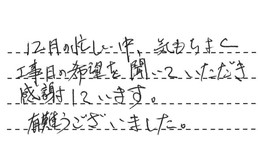 12月の忙しい中、気もちよく
工事日の希望を聞いていただき
感謝しています。
有難うございました。